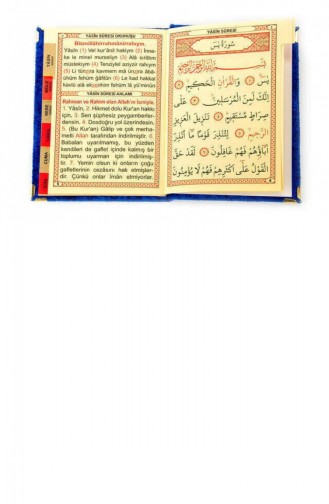 YÂSİN SÛRESİ OKUNUŞU
Bismillâhirrahmânirrahıym.
Yâsîn (1) Vel kur'ânil hakîym (2) İnne-
ke le minel murselîyn (3) Alâ sırâtim
müstekıym (4) Tenzîylel azîyzir rahıym
(5) Li tünzira kavmem mâ ünzira âbâ-
ühüm fehüm ğâfilûn (6) Le kad hakkal
kavlü alâ ekserihim fehüm lâ yü'minûn
YÂSİN SÛRESİ ANLAMI
Rahman ve Rahim olan Allah'ın ismiyle.
1. Yâsîn. 2. Hikmet dolu Kur'an hakkı
için, 3. Sen şüphesiz peygamberler-
densin. 4. Dosdoğru yol üzerindesin.
5. (Bu Kur'an) Gâlip ve çok merha-
metli Allah tarafından indirilmiştir. 6.
Babaları uyarılmamış, bu yüzden
kendileri de gaflet içinde kalmış bir
toplumu uyarman için indirilmiş-
tir. 7. Yemin olsun ki onların çoğu
gafletlerinin cezâsını hak etmişler-
dir. Çünkü onlar îman etmiyorlar.
YÂSİN
CUMA
YÂSİN SÛRESİ
سُورَةُ يٰسٓ
بِسْمِ اللّٰهِ الرَّحْمٰنِ الرَّحِيمِ
يٰسٓ ۝ وَالْقُرْاٰنِ الْحَكِيمِ ۝
اِنَّكَ لَمِنَ الْمُرْسَلِينَ ۝ عَلٰى
صِرَاطٍ مُسْتَقِيمٍ ۝ تَنْزِيلَ الْعَزِيزِ
الرَّحِيمِ ۝ لِتُنْذِرَ قَوْمًا مَا اُنْذِرَ
اٰبَاؤُهُمْ فَهُمْ غَافِلُونَ ۝ لَقَدْ حَقَّ
الْقَوْلُ عَلٰى اَكْثَرِهِمْ فَهُمْ لَا يُؤْمِنُونَ